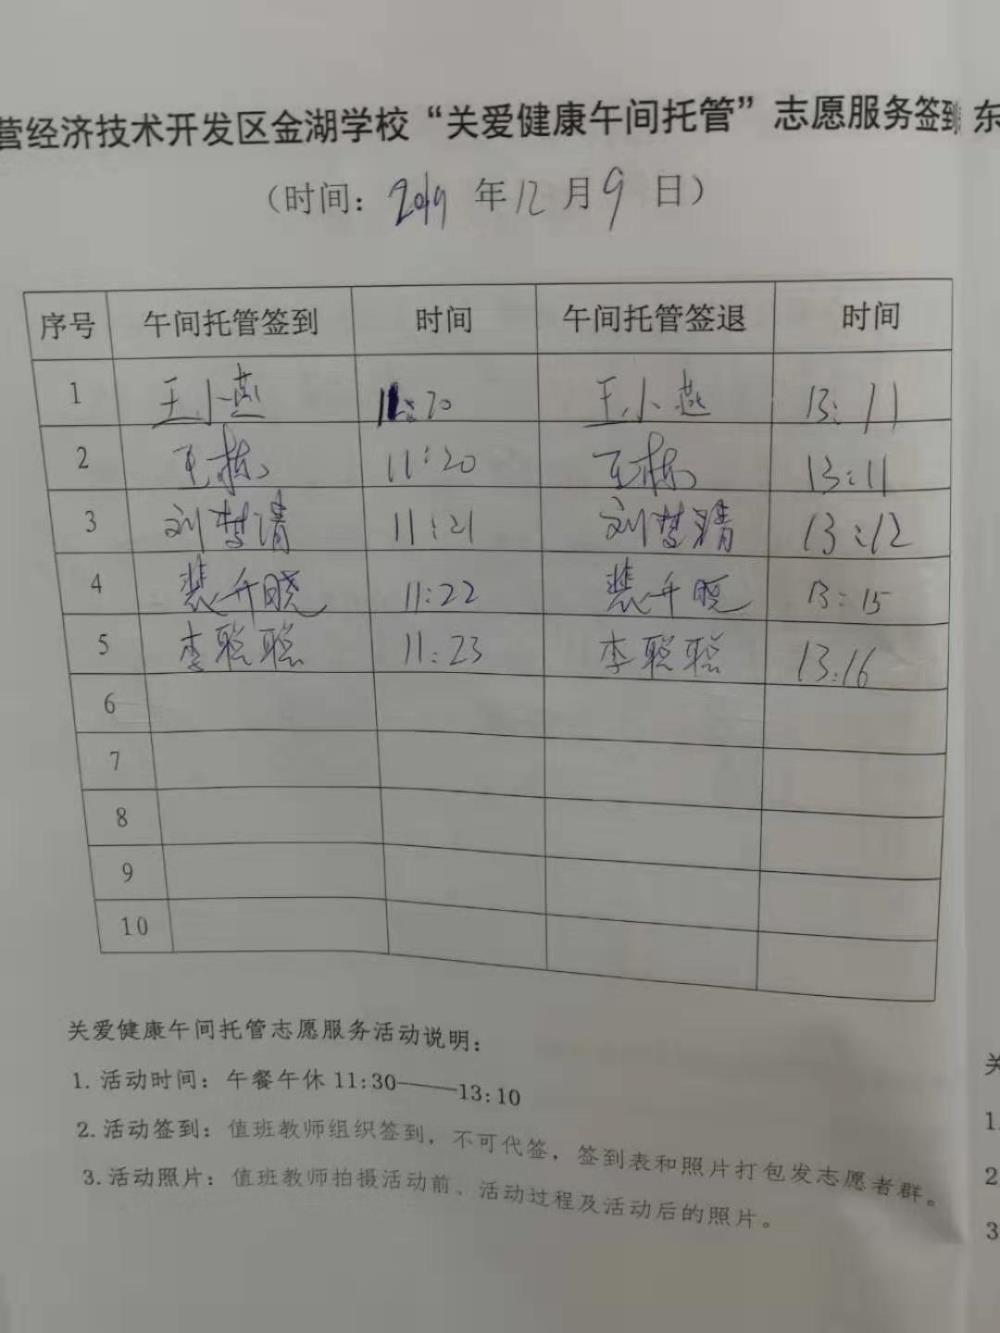 营经济技术开发区金湖学校“关爱健康午间托管”志愿服务签到 东
（时间：2019年12月9日）
序号 午间托管签到 时间 午间托管签退 时间
1 王小燕 11:20 王小燕 13:11
2 王栋 11:20 王栋 13:11
3 刘梦清 11:21 刘梦清 13:12
4 裴千晓 11:22 裴千晓 13:15
5 李聪聪 11:23 李聪聪 13:16
6
7
8
9
10
关爱健康午间托管志愿服务活动说明：
1. 活动时间：午餐午休 11:30——13:10
2. 活动签到：值班教师组织签到，不可代签，签到表和照片打包发志愿者群。
3. 活动照片：值班教师拍摄活动前、活动过程及活动后的照片。
关
1.
2
3